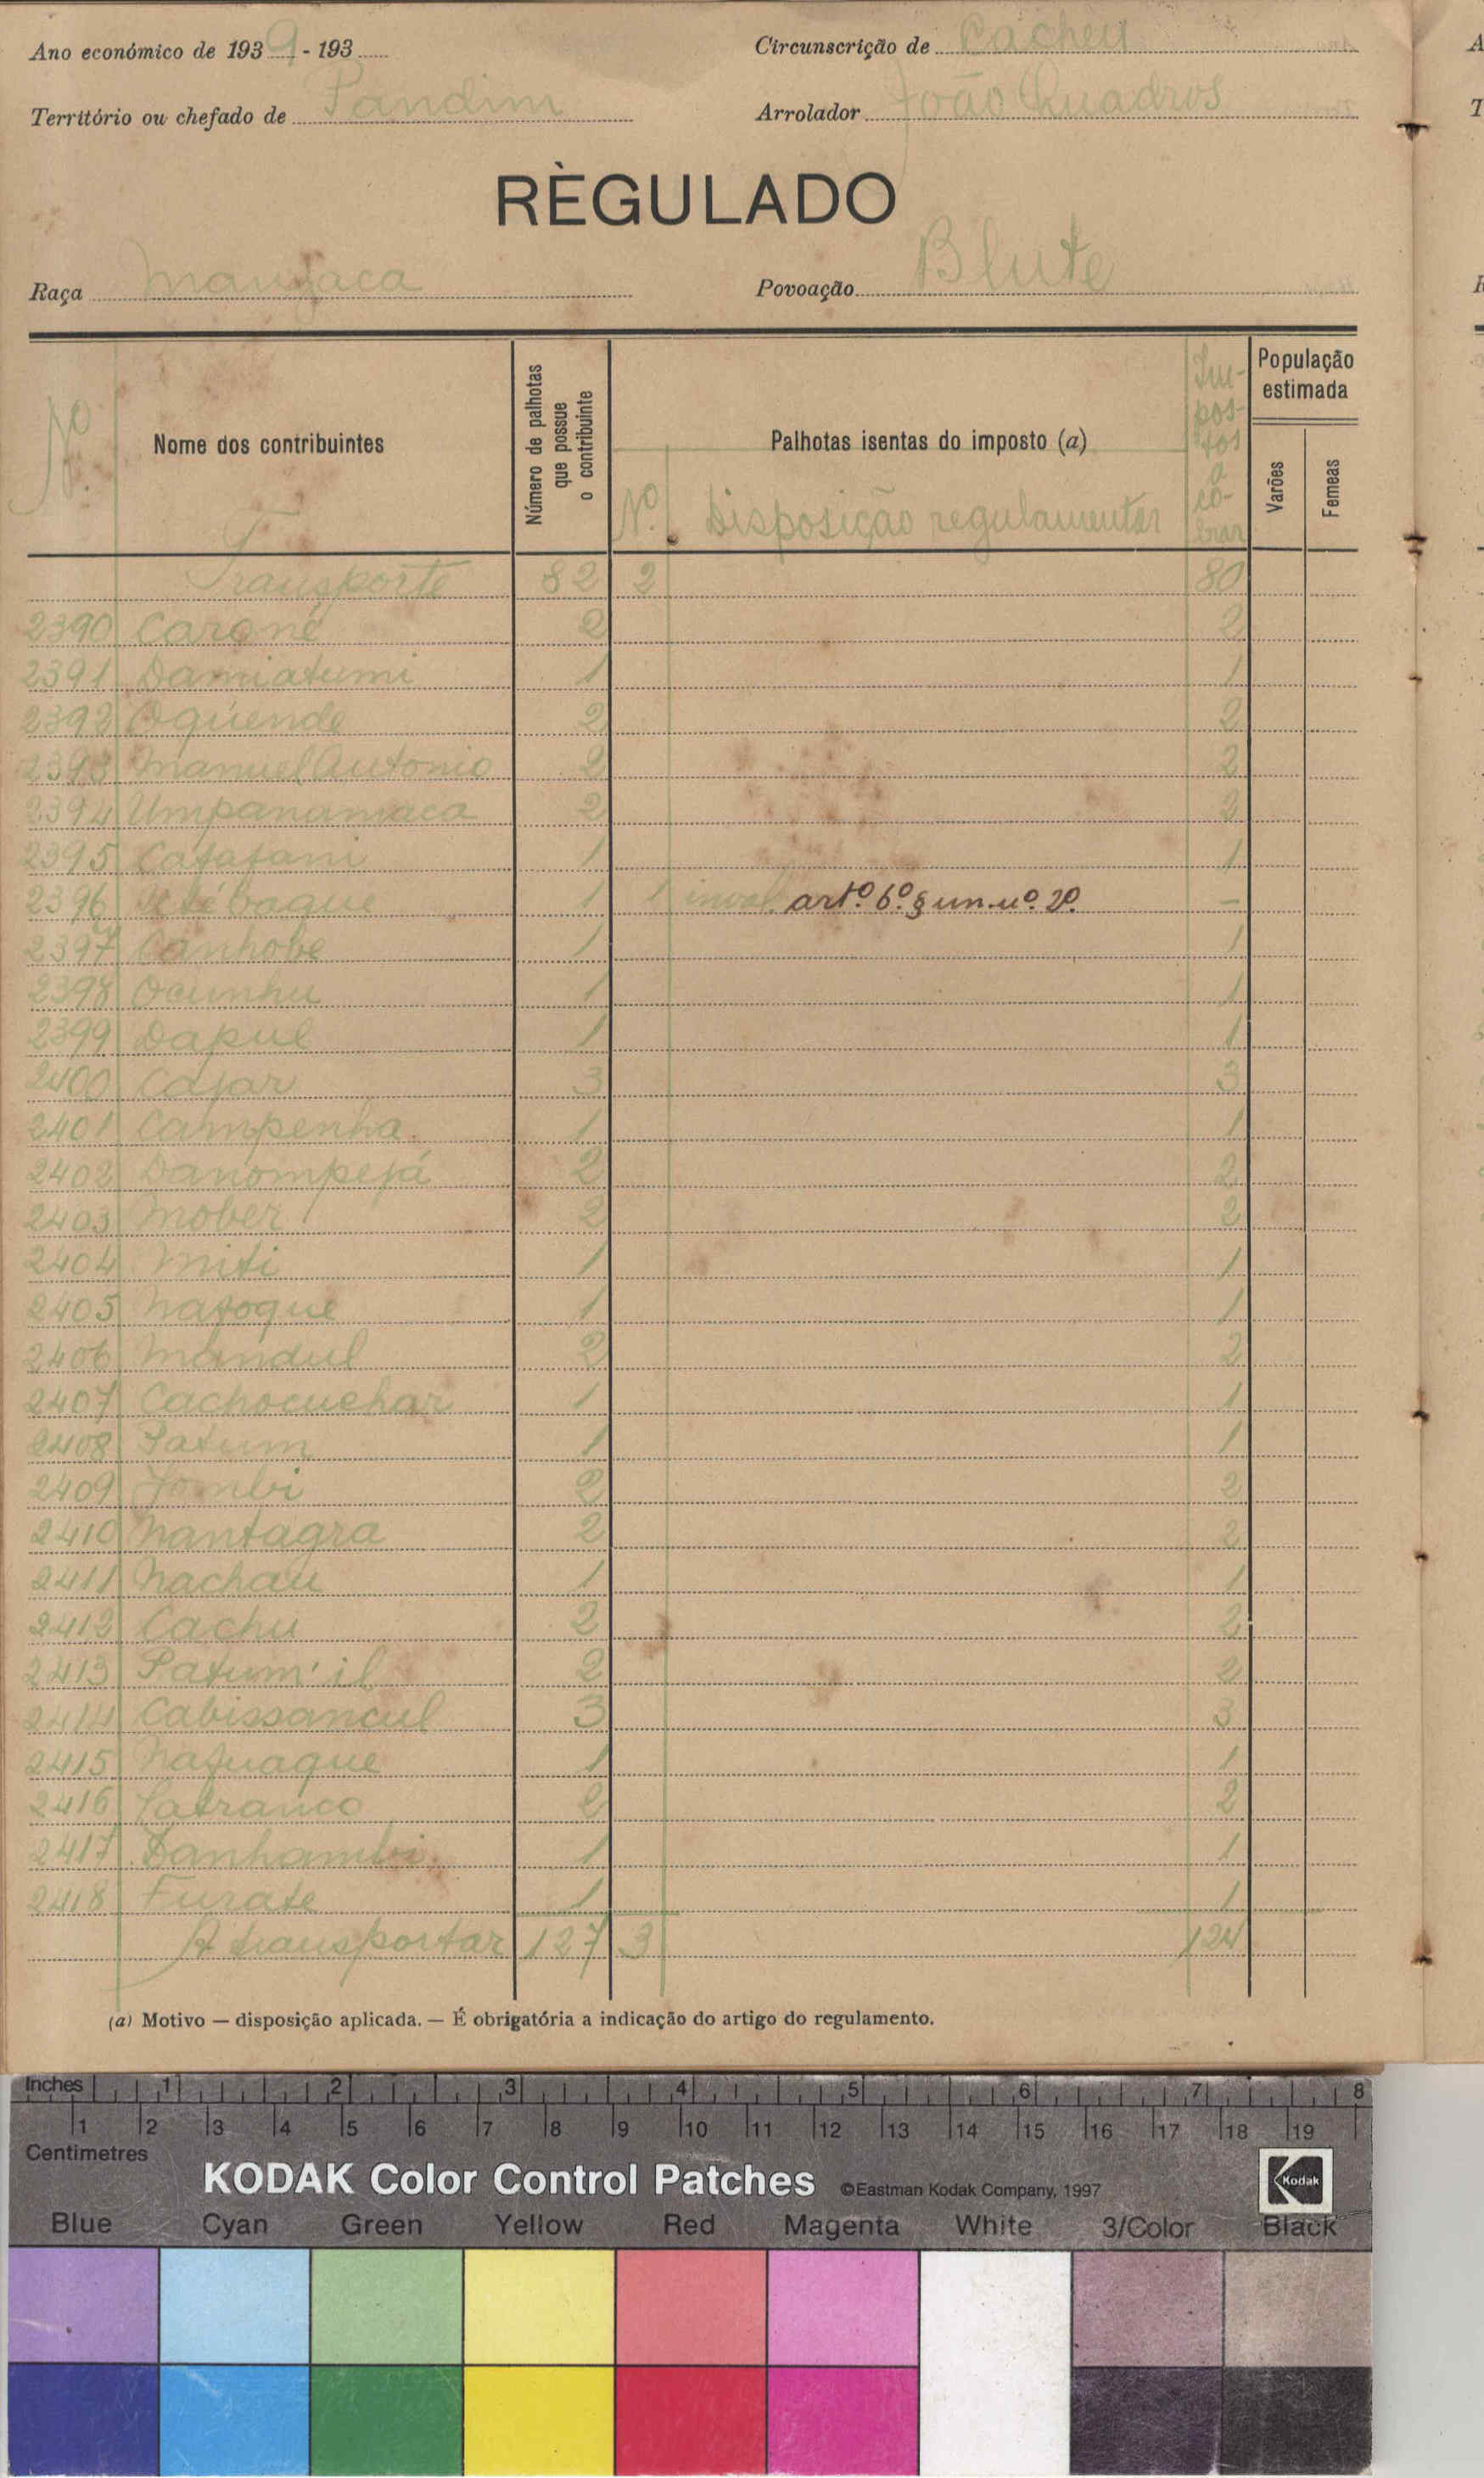 Ano económico de 1939-193
Circunscrição de Cacheu
Território ou chefado de Pandim
Arrolador João Quadros
RÈGULADO
Raça Manjaca
Povoação Blute
Nº
Nome dos contribuintes
Número de palhotas que possue o contribuinte
Palhotas isentas do imposto (a)
Nº. Disposição regulamentar
Impostos a cobrar
População estimada
Varões
Femeas
Transporte 82 2 80
2390 Caroné 2 2
2391 Damiatumi 1 1
2392 Oquende 2 2
2393 Manuel Antonio 2 2
2394 Umpanamaca 2 2
2395 Catafam 1 1
2396 1 1 inval. artº. 6º. § un. nº. 2º. –
2397 Canhobe 1 1
2398 Ocunhu 1 1
2399 Dapul 1 1
2400 Cajar 3 3
2401 Campenha 1 1
2402 Danompejá 2 2
2403 Mober 2 2
2404 Miti 1 1
2405 Natoque 1 1
2406 Mandul 2 2
2407 Cachocuehar 1 1
2408 Patum 1 1
2409 Jombi 2 2
2410 Nantagra 2 2
2411 Nachau 1 1
2412 Cachu 2 2
2413 Patum'il 2 2
2414 Cabissancul 3 3
2415 Nafuaque 1 1
2416 2 2
2417 Danhambi 1 1
2418 Furate 1 1
A transportar 127 3 124
(a) Motivo — disposição aplicada. — É obrigatória a indicação do artigo do regulamento.
Inches 1 2 3 4 5 6 7 8
1 2 3 4 5 6 7 8 9 10 11 12 13 14 15 16 17 18 19
Centimetres
KODAK Color Control Patches ©Eastman Kodak Company, 1997 Kodak
Blue Cyan Green Yellow Red Magenta White 3/Color Black